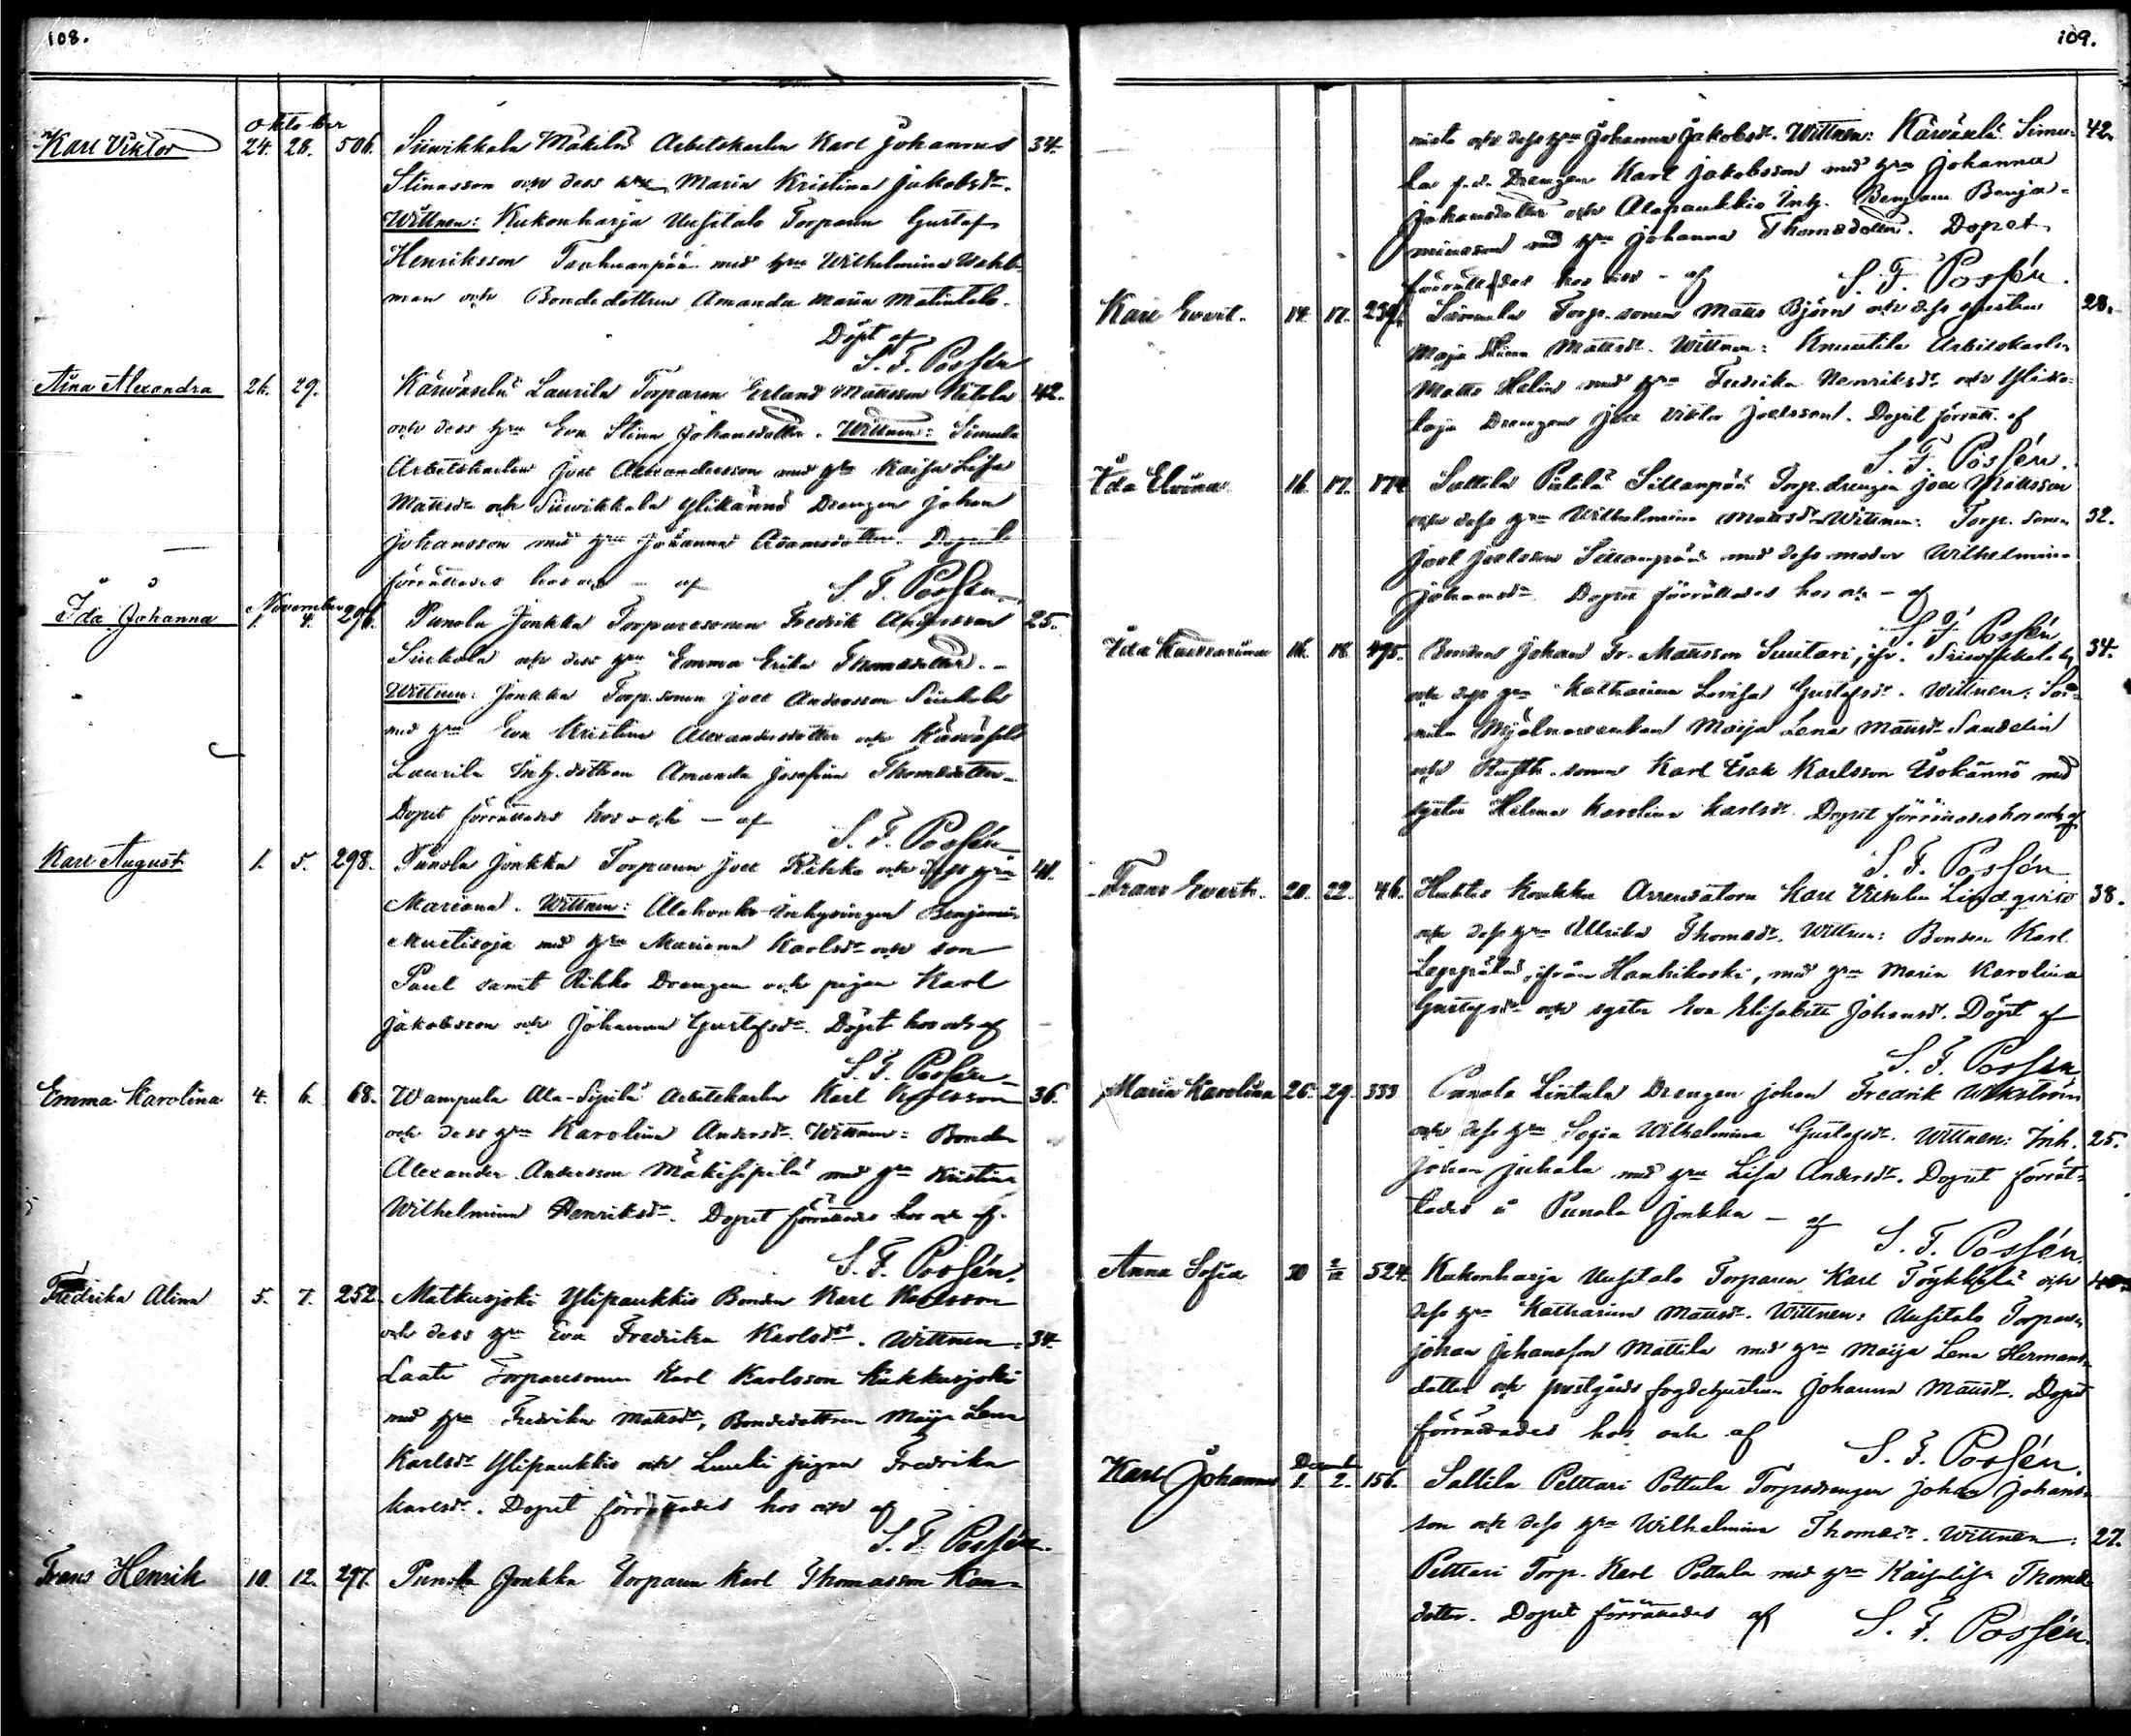 108.
Oktober
Karl Viktor 24. 28. 506. Siiwikkala Mäkelä Arbetskarlen Karl Johannes 34.
Stinasson och dess hru Maria Kristina Jakobsdr.
Wittnen: Kukonharja Uusitalo Torparen Gustaf
Henriksson med hru Wilhelmina
man och Bondedottren Amanda Maria
Döpt af
S. F. Possén
Aina Alexandra 26. 29. Laurila Torparen Erland Mattsson Ketola 42.
och dess hru Eva Stina Johansdotter. Wittnen: Simula
Arbetskarlen Joel Alexandersson med hru Kaisa Lisa
Mattsdr och Siiwikkala Ylikännö Drengen Johan
Johansson med hru Johanna Adamsdotter. Dopet
förrättades hos och - af S. F. Possén
November
Ida Johanna 1. 4. 296. Punola Jonkka Torparesonen Fredrik Andersson 25.
Sinkola och dess hru Emma Erika Thomasdotter. -
Wittnen: Jonkka Torp.sonen Joel Andersson Sinkola
med hru Eva Kristina Alexandersdotter och
Laurila Inh. dottren Amanda Josefina Thomasdotter
Dopet förrättades hos och - af
S. F. Possén
Karl August 1. 5. 298. Punola Jonkka Torparen Joel Rihko och dess hru 41.
Mariana. Wittnen: Inhysingen Benjamin
med hru Mariana Karlsdr och son
Paul samt Rihko Drengen och pigan Karl
Jakobsson och Johanna Gustafsdr. Döpt hos och af
S. F. Possén
Emma Karolina 4. 6. 68. Wampula Ala-Sipilä Arbetskarlen Karl Karlsson 36.
och dess hru Karolina Andersdr. Wittnen: Bonden
Alexander Andersson Mäkisipilä med hru Kristina
Wilhelmina Henriksdr. Dopet förrättades hos och af
S. F. Possén.
Fredrika Alina 5. 7. 252. Matkusjoki Ylipaukkio Bonden Karl Karlsson
och dess hru Eva Fredrika Karlsdr. Wittnen: 34.
Torparesonen Karl Karlsson Kukkusjoki
med hru Fredrika Mattsdr, Bondedottren Maija Lena
Karlsdr Ylipaukkio och pigan Fredrika
Karlsdr. Dopet förrättades hos och af
S. F. Possén.
Frans Henrik 10. 12. 297. Punola Jonkka Torparen Karl Thomasson
109.
och dess hru Johanna Jakobsdr. Wittnen: 42.
la f.d. Drengen Karl Jakobsson med hru Johanna
Johansdotter och Alapaukkio Inh. Benjam. Benja-
minsson med hru Johanna Thomasdotter. Dopet
förrättades hos och - af S. F. Possén.
Karl Evert. 14. 17. 239. Torp.sonen Matts Björn och dess hustru 28.
Maja Stina Mattsdr. Wittnen: Arbetskarlen
Matts Helin med hru Fredrika Henriksdr och
Drengen Joel Viktor Joelsson. Dopet förrätt. af
S. F. Possén.
Ida Elvina 16. 17. 174 Sallila Sillanpää Torp.drengen Joel Mattsson
och dess hru Wilhelmina Mattsdr. Wittnen: Torp. sonen 32.
Joel Joelsson Sillanpää med dess moder Wilhelmina
Johansdr. Dopet förrättades hos och - af
S. F. Possén
Ida Katharina 16. 18. 495. Bonden Johan Fr. Mattsson Suutari, ifr. Siiwikkala by 34.
och dess hru Katharina Lovisa Gustafsdr. Wittnen:
Maija Lena Mattsdr Sandelin
och sonen Karl Isak Karlsson Isokännö med
syster Helena Karolina Karlsdr. Dopet förrättades hos och af
S. F. Possén
Frans Evert. 20. 22. 46. Huhtis Koukku Arrendatorn Karl Vilhelm Lindqvist 38.
och dess hru Ulrika Thomasdr. Wittnen: Bonden Karl
ifrån Hanhikoski, med hru Maria Karolina
Gustafsdr och syster Eva Elisabeth Johansdr. Döpt af
S. F. Possén
Maria Karolina 26. 29. 333 Punola Liutula Drengen Johan Fredrik Wikström
och dess hru Sofia Wilhelmina Gustafsdr. Wittnen: Inh. 25.
Johan Juhala med hru Lisa Andersdr. Dopet förrät-
tades å Punola Jonkka - af S. F. Possén.
Anna Sofia 30 2/12 524. Kukonharja Uusitalo Torparen Karl Töykkälä och 40
dess hru Katharina Mattsdr. Wittnen: Uusitalo Torparen
Johan Johansson Mattila med hru Maija Lena Hermans-
dotter och prestgårds fogdehustrun Johanna Mattsdr. Dopet
förrättades hos och af S. F. Possén.
December
Karl Johannes 1. 2. 156. Sallila Pelttari Pottula Torpdrengen Johan Johans-
son och dess hru Wilhelmina Thomasdr. Wittnen: 27.
Pelttari Torp. Karl Pottula med hru Kaisa Lisa Thomas-
dotter. Dopet förrättades af S. F. Possén.